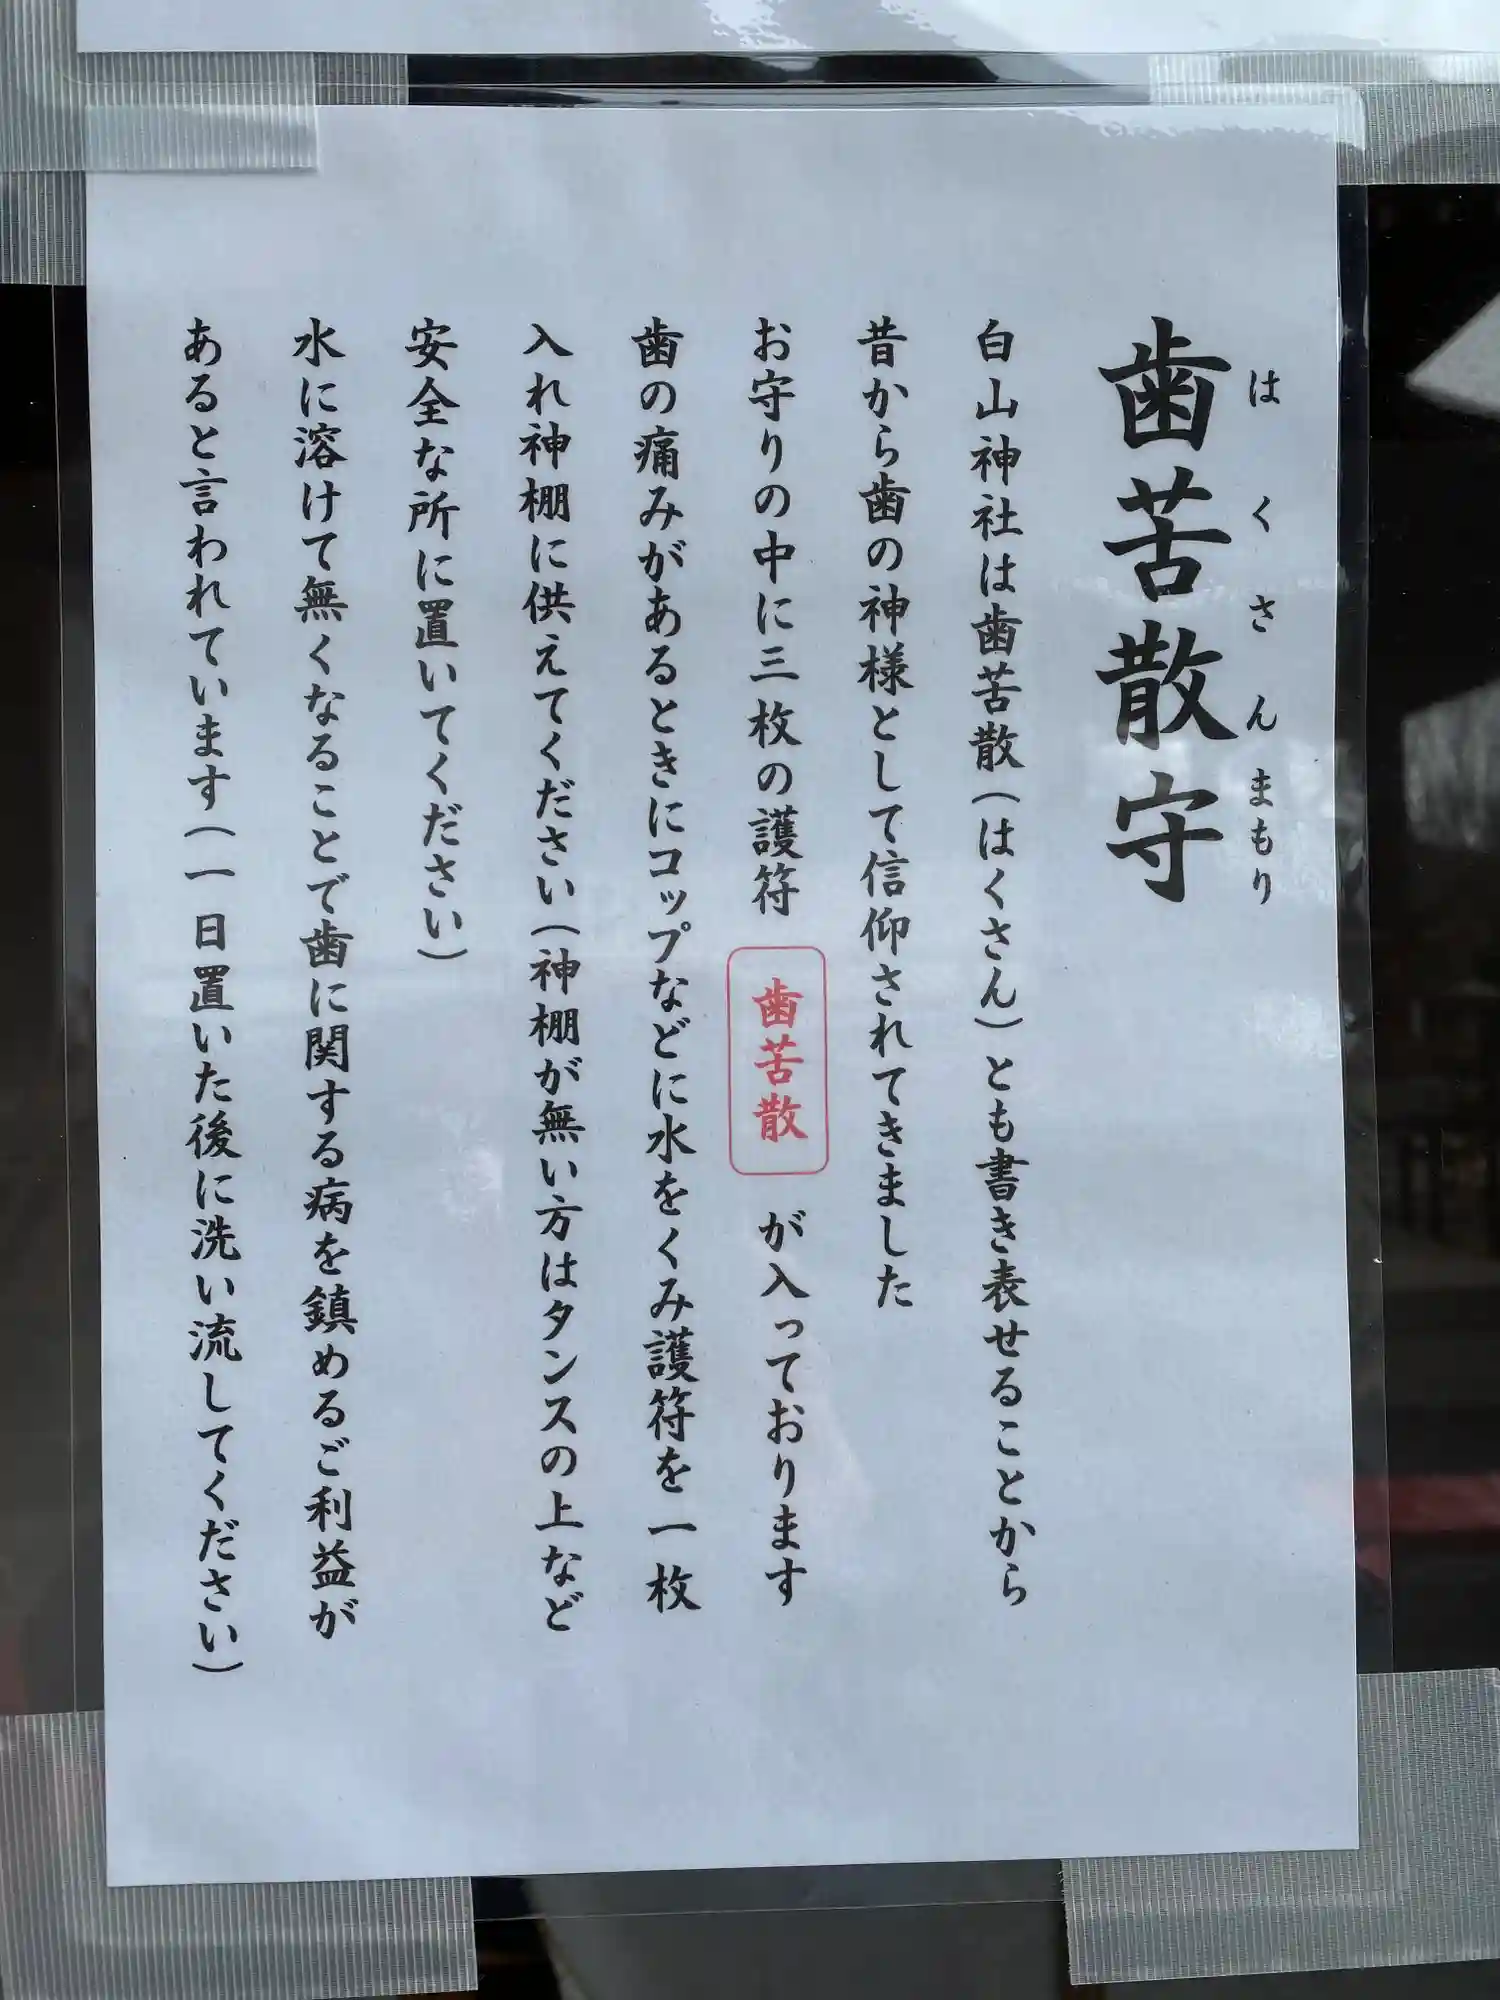 歯苦散守
はくさんまもり
白山神社は歯苦散(はくさん)とも書き表せることから
昔から歯の神様として信仰されてきました
お守りの中に三枚の護符 歯苦散 が入っております
歯の痛みがあるときにコップなどに水をくみ護符を一枚
入れ神棚に供えてください(神棚が無い方はタンスの上など
安全な所に置いてください)
水に溶けて無くなることで歯に関する病を鎮めるご利益が
あると言われています(一日置いた後に洗い流してください)